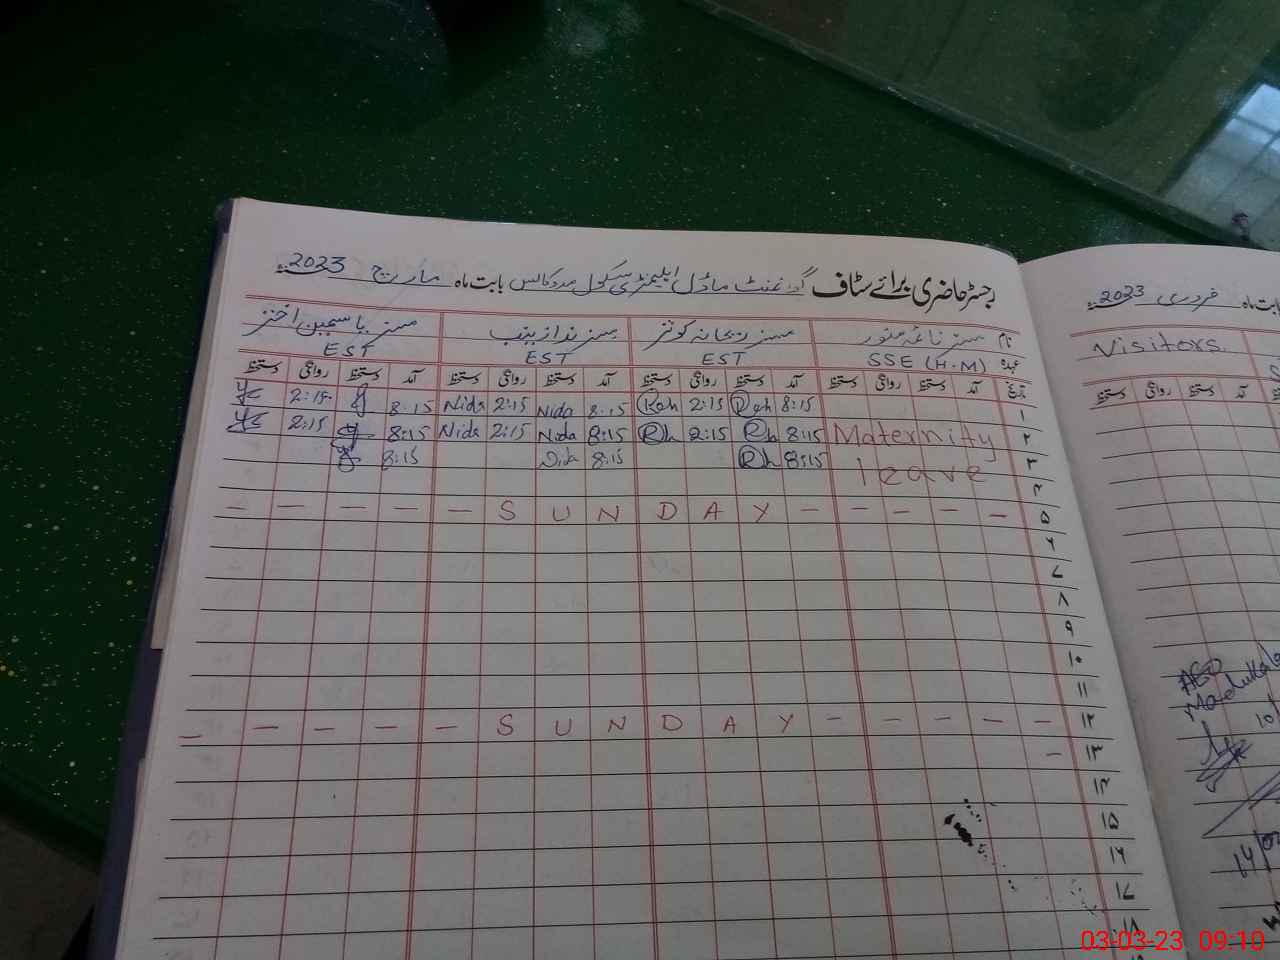 رجسٹر حاضری برائے سٹاف گورنمنٹ ماڈل ایلیمنٹری سکول مدوکالس بابت ماہ مارچ 2023
نام مسز نائمہ منور مسز ریحانہ کوثر مسز ندا زینب مسز یاسمین اختر
عہدہ SSE (H.M) EST EST EST
تاریخ آمد دستخط روانگی دستخط آمد دستخط روانگی دستخط آمد دستخط روانگی دستخط آمد دستخط روانگی دستخط
۱ 8:15 Rah 2:15 Rah 8:15 Nida 2:15 Nida 8:15 2:15
۲ Maternity 8:15 Rh 2:15 Rh 8:15 Nida 2:15 Nida 8:15 2:15
۳ leave 8:15 Rh 8:15 Nida 8:15
۴
۵ — — — — — S U N D A Y — — — — —
۶
۷
۸
۹
۱۰
۱۱
۱۲ — — — — — S U N D A Y — — — — —
۱۳ —
۱۴
۱۵
۱۶
۱۷
۱۸
بابت ماہ فروری 2023
Visitors
آمد دستخط روانگی دستخط
AEO
10/
14/
03-03-23 09:10